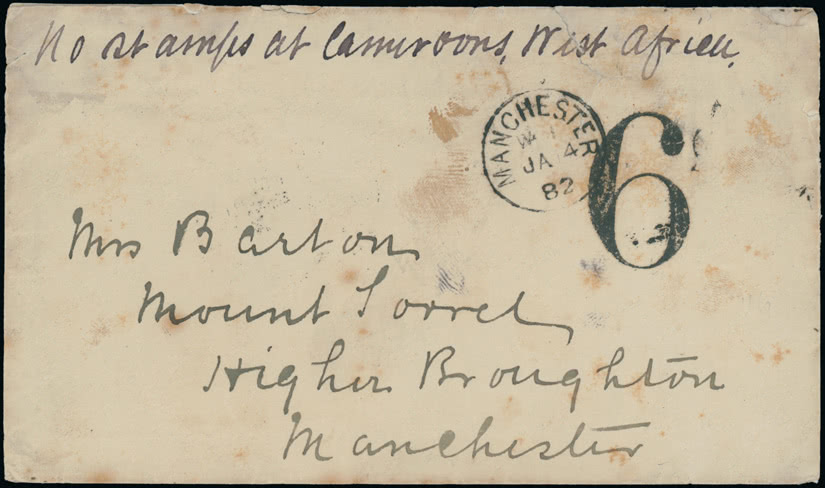 No stamps at Cameroons, West Africa.
MANCHESTER
JA 4
82
6
Mrs Barton
Mount Sorrel
Higher Broughton
Manchester